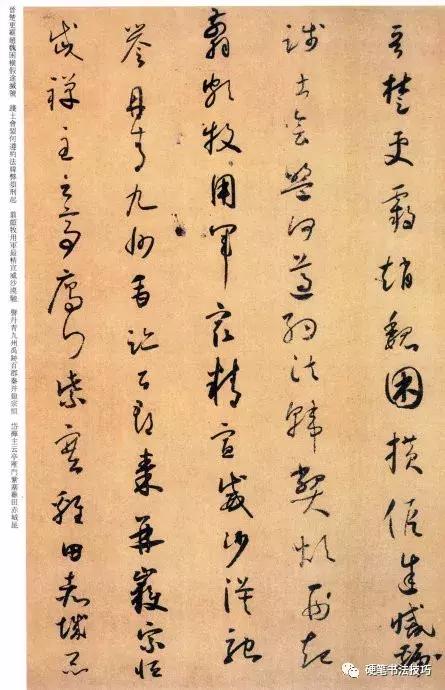 晉楚更霸趙魏困橫假途滅虢
踐土會盟何遵約法韓弊煩刑起
翦頗牧用軍最精宣威沙漠馳
譽丹青九州禹跡百郡秦并嶽宗恒
岱禪主云亭雁門紫塞雞田赤城昆
晉楚更霸趙魏困橫假途滅虢 踐土會盟何遵約法韓弊煩刑起 翦頗牧用軍最精宣威沙漠馳 譽丹青九州禹跡百郡秦并嶽宗恒 岱禪主云亭雁門紫塞雞田赤城昆
硬笔书法技巧